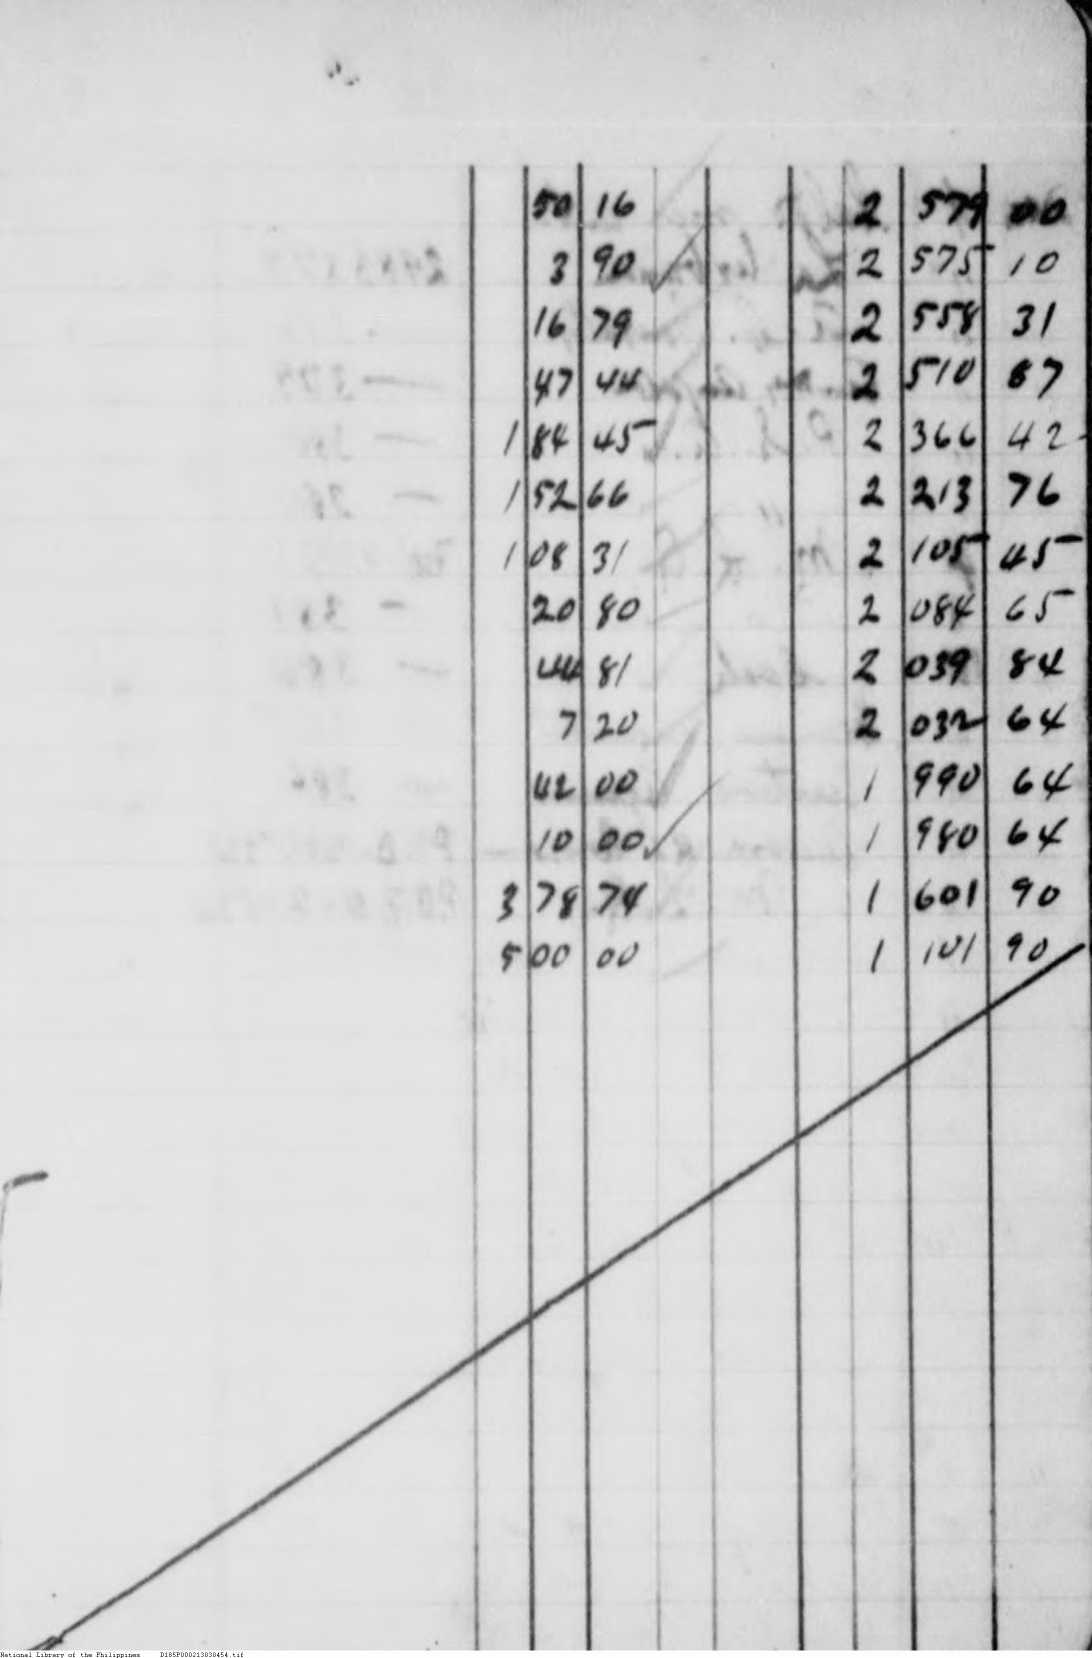 50 16 2 579 00
3 90 2 575 10
16 79 2 558 31
47 44 2 510 87
1 44 45 2 366 42
1 52 66 2 213 76
1 08 31 2 105 45
20 80 2 084 65
44 81 2 039 84
7 20 2 032 64
42 00 1 990 64
10 00 1 980 64
3 78 74 1 601 90
5 00 00 1 101 90
National Library of the Philippines D185P000213030454.tif